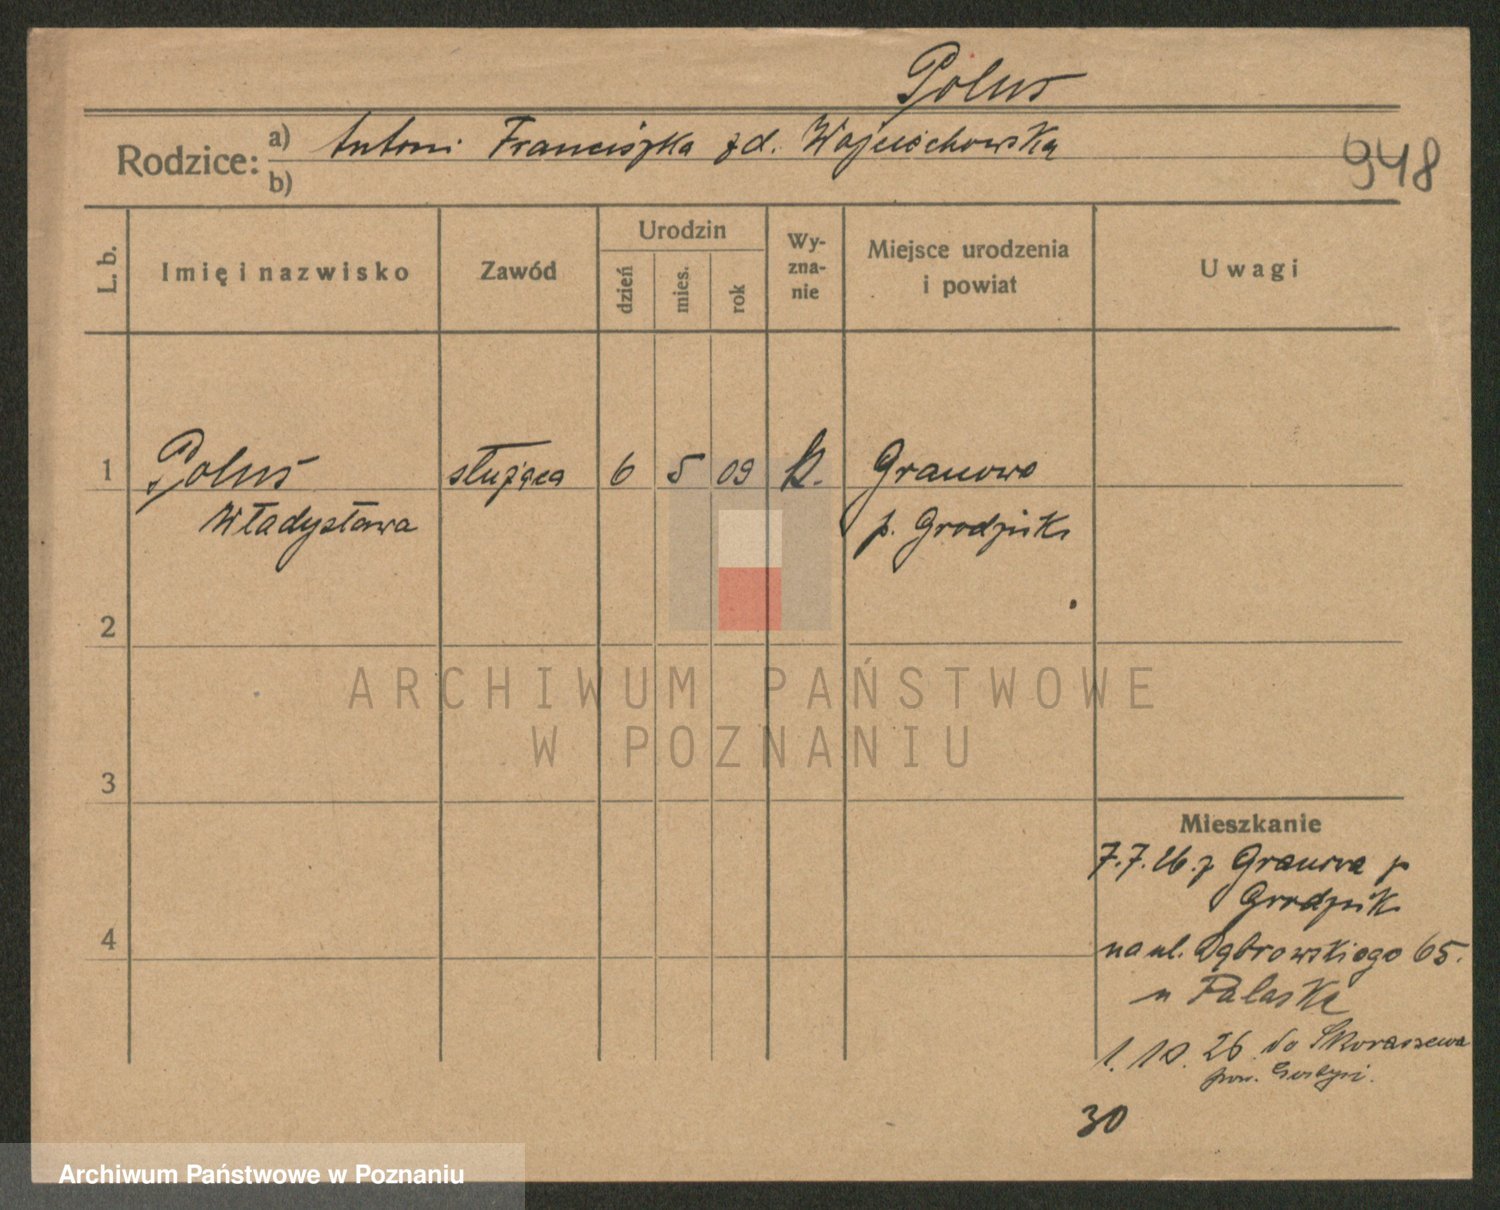 Poluś
Rodzice: a) Antoni Franciszka zd. Wojciechowska
b)
948
L. b.
Imię i nazwisko
Zawód
Urodzin
dzień
mies.
rok
Wy-
zna-
nie
Miejsce urodzenia
i powiat
Uwagi
1 Poluś służąca 6 5 09 k. Granowo
Władysława p. Grodzisk
2
3
4
ARCHIWUM PAŃSTWOWE
W POZNANIU
Mieszkanie
7.7.26. z Granowa p
Grodzisk
na ul. Dąbrowskiego 65.
u
1. 10. 26 do Skoraszewa
pow. Gostyń.
30
Archiwum Państwowe w Poznaniu